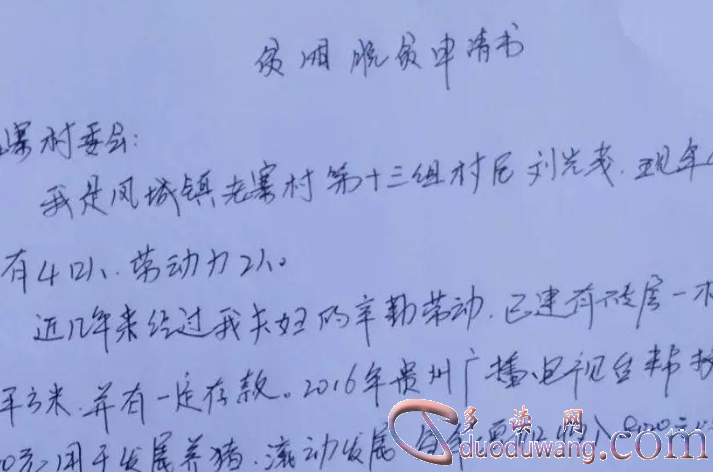 贫困脱贫申请书
寨村委会:
我是凤城镇老寨村第十三组村民刘光茂.现年
有4口人、劳动力2人。
近几年来经过我夫妇的辛勤劳动.已建有砖房一
平方米.并有一定存款。2016年贵州广播电视台帮扶
0元用于发展养猪.滚动发展 每年
多读网
duoduwang.com